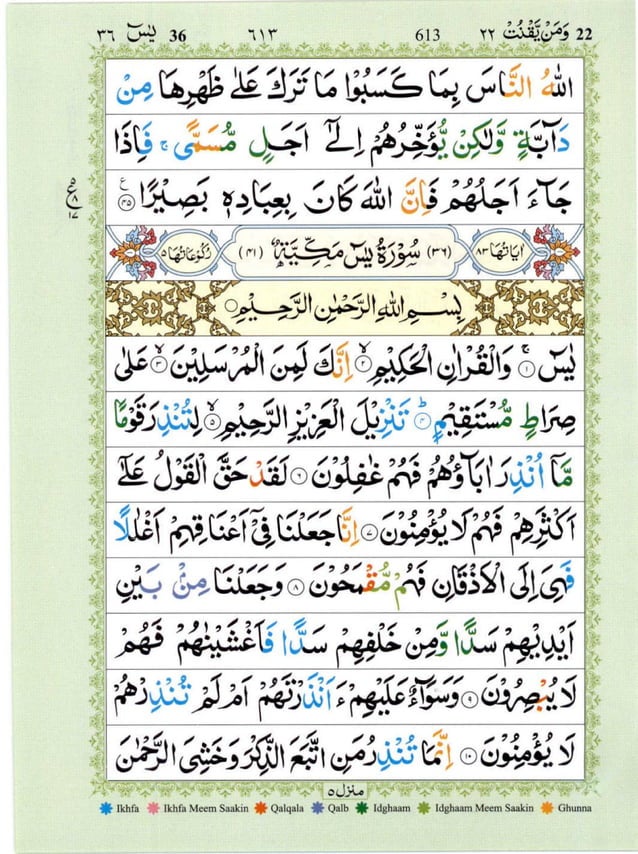 يٰسٓ ٣٦ 36 ٦١٣ 613 وَمَنْ يَّقْنُتْ ٢٢ 22
اللّٰهُ النَّاسَ بِمَا كَسَبُوْا مَا تَرَكَ عَلٰى ظَهْرِهَا مِنْ
دَآبَّةٍ وَّلٰكِنْ يُّؤَخِّرُهُمْ اِلٰٓى اَجَلٍ مُّسَمًّى ۚ فَاِذَا
جَآءَ اَجَلُهُمْ فَاِنَّ اللّٰهَ كَانَ بِعِبَادِهٖ بَصِيْرًا ﴿٤٥﴾
ع ٥ ٨ ١٧
اٰيَاتُهَا ٨٣ (٣٦) سُوْرَةُ يٰسٓ مَكِّيَّةٌ (٤١) رُكُوْعَاتُهَا ٥
بِسْمِ اللّٰهِ الرَّحْمٰنِ الرَّحِيْمِ
يٰسٓ ۚ﴿١﴾ وَالْقُرْاٰنِ الْحَكِيْمِ ۙ﴿٢﴾ اِنَّكَ لَمِنَ الْمُرْسَلِيْنَ ۙ﴿٣﴾ عَلٰى
صِرَاطٍ مُّسْتَقِيْمٍ ؕ﴿٤﴾ تَنْزِيْلَ الْعَزِيْزِ الرَّحِيْمِ ۙ﴿٥﴾ لِتُنْذِرَ قَوْمًا
مَّآ اُنْذِرَ اٰبَآؤُهُمْ فَهُمْ غٰفِلُوْنَ ﴿٦﴾ لَقَدْ حَقَّ الْقَوْلُ عَلٰٓى
اَكْثَرِهِمْ فَهُمْ لَا يُؤْمِنُوْنَ ﴿٧﴾ اِنَّا جَعَلْنَا فِيْٓ اَعْنَاقِهِمْ اَغْلٰلًا
فَهِيَ اِلَى الْاَذْقَانِ فَهُمْ مُّقْمَحُوْنَ ﴿٨﴾ وَجَعَلْنَا مِنْۢ بَيْنِ
اَيْدِيْهِمْ سَدًّا وَّمِنْ خَلْفِهِمْ سَدًّا فَاَغْشَيْنٰهُمْ فَهُمْ
لَا يُبْصِرُوْنَ ﴿٩﴾ وَسَوَآءٌ عَلَيْهِمْ ءَاَنْذَرْتَهُمْ اَمْ لَمْ تُنْذِرْهُمْ
لَا يُؤْمِنُوْنَ ﴿١٠﴾ اِنَّمَا تُنْذِرُ مَنِ اتَّبَعَ الذِّكْرَ وَخَشِيَ الرَّحْمٰنَ
منزل ٥
Ikhfa Ikhfa Meem Saakin Qalqala Qalb Idghaam Idghaam Meem Saakin Ghunna